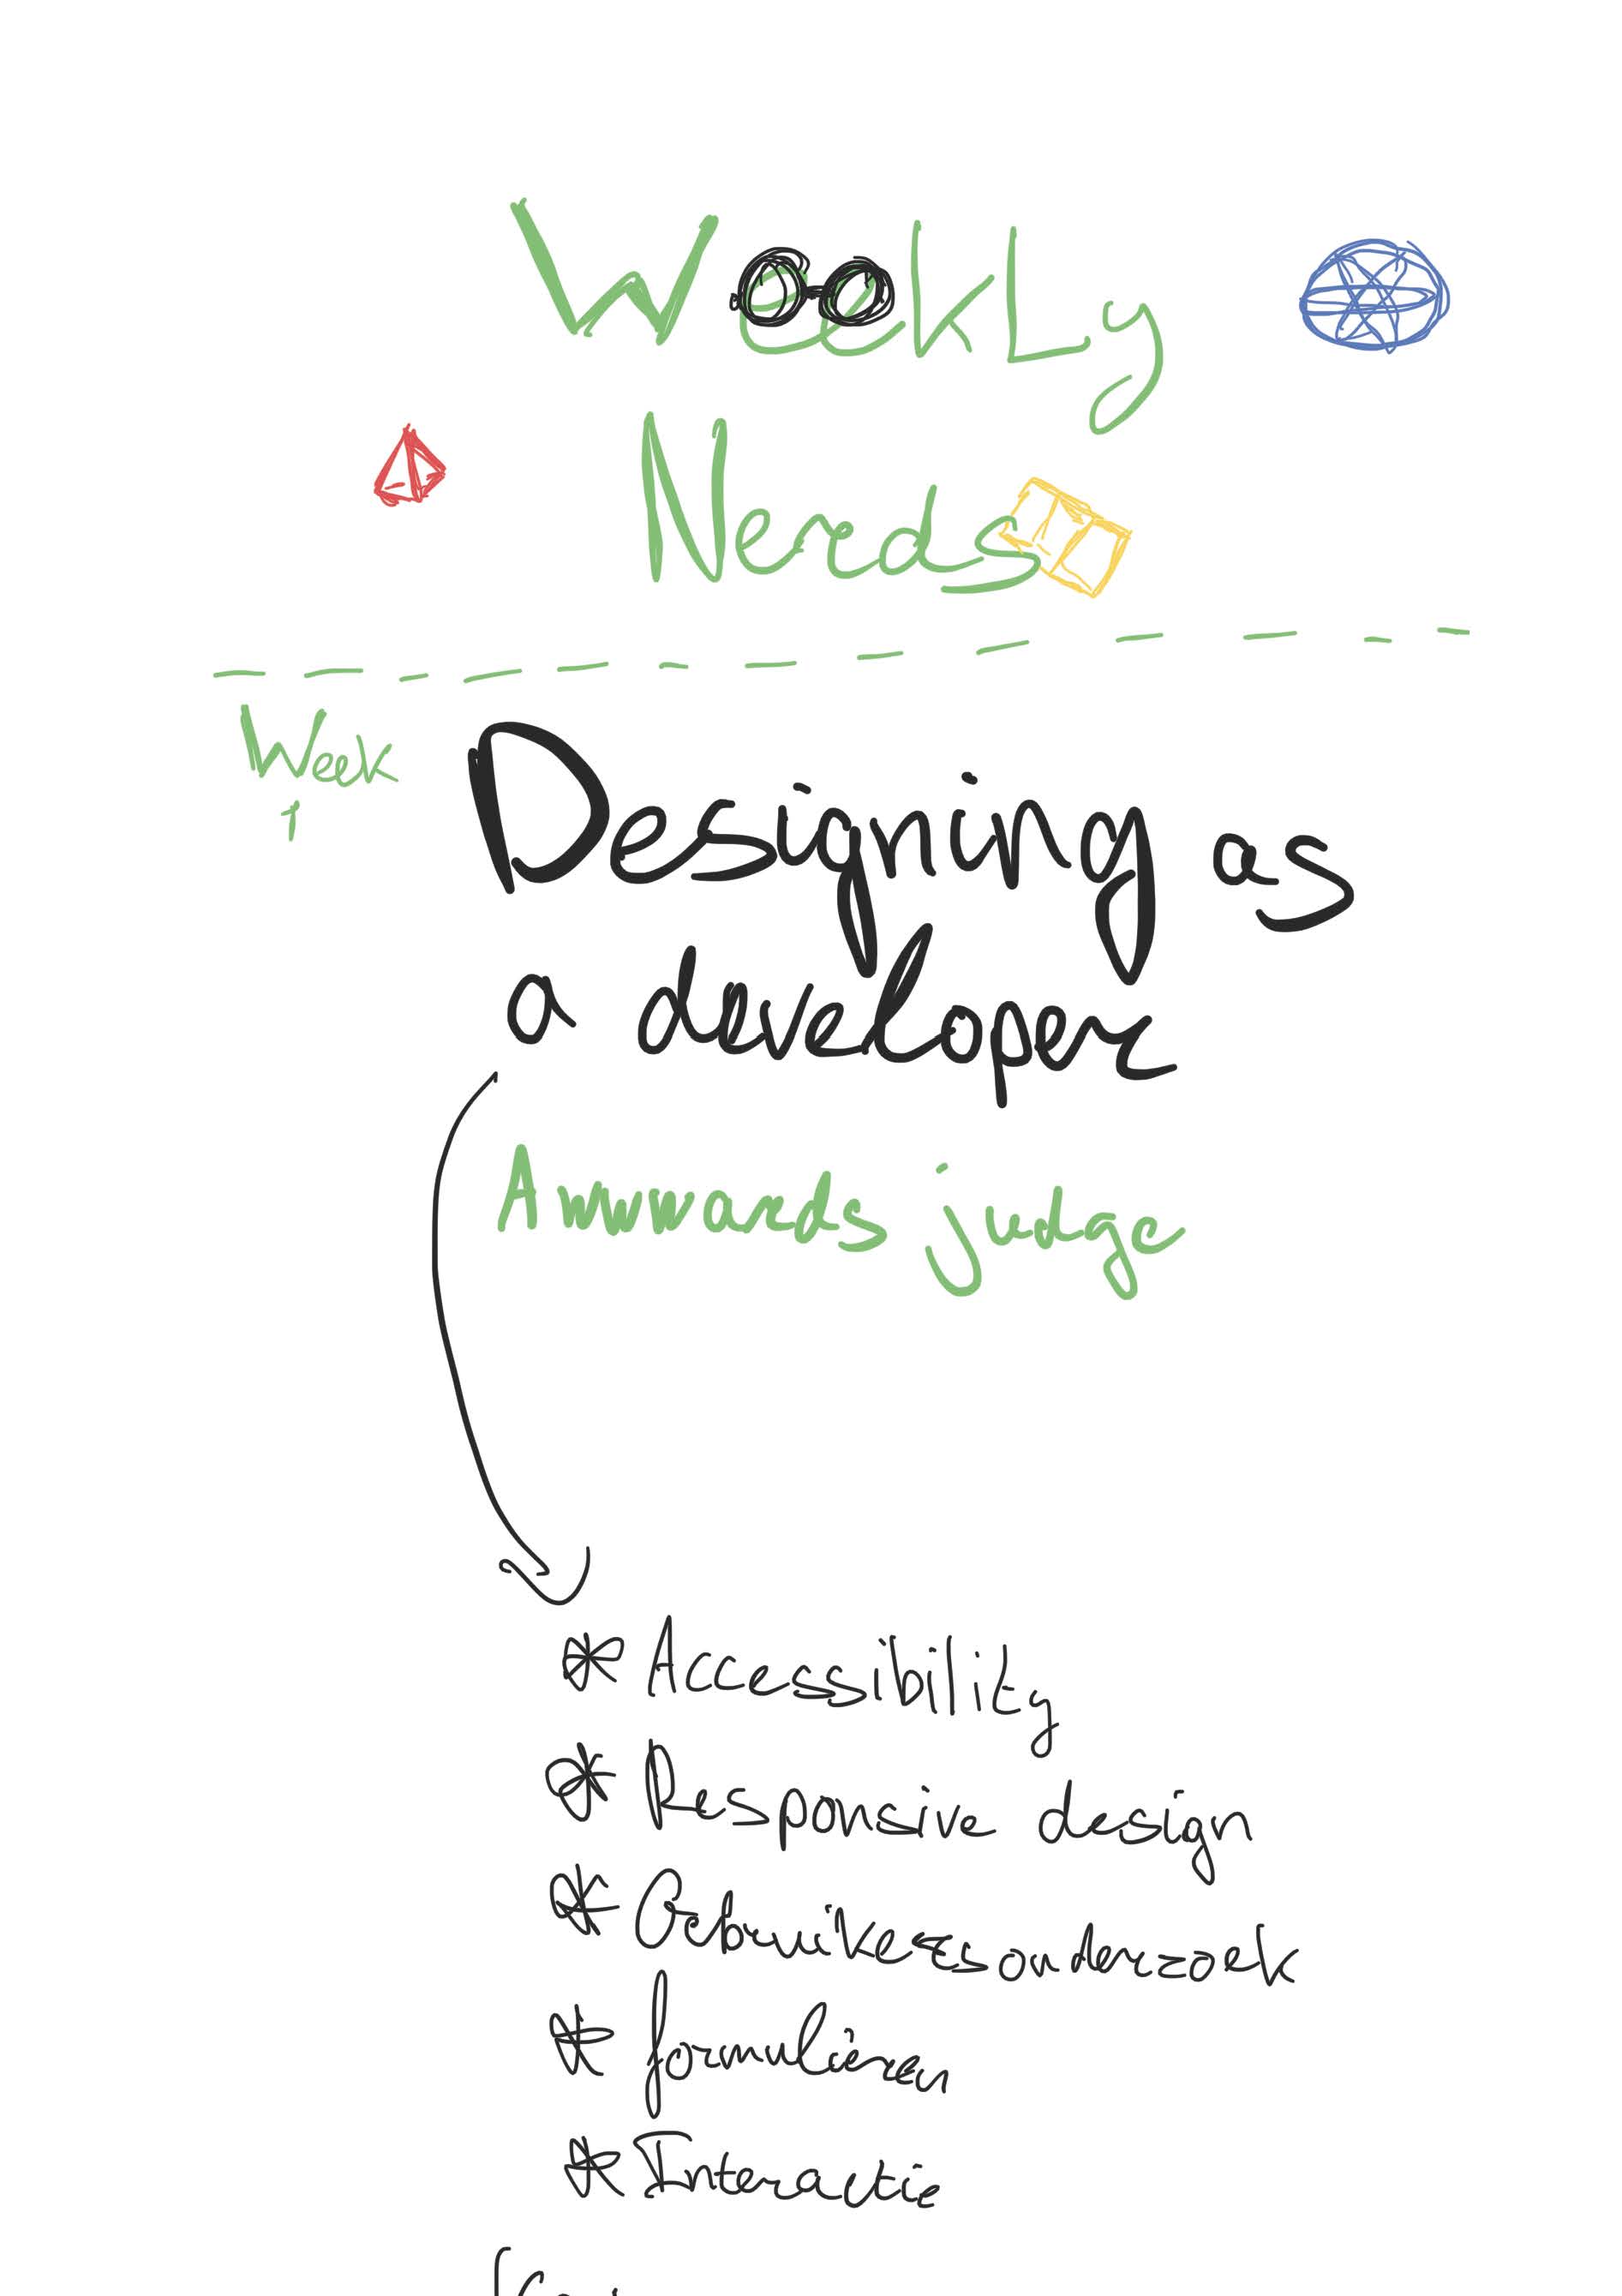 Weekly
Nerds
Week
1
Designing as
a developer
Awwwards judge
* Accessibility
* Responsive design
* Gebruikersonderzoek
* formulieren
* Interactie